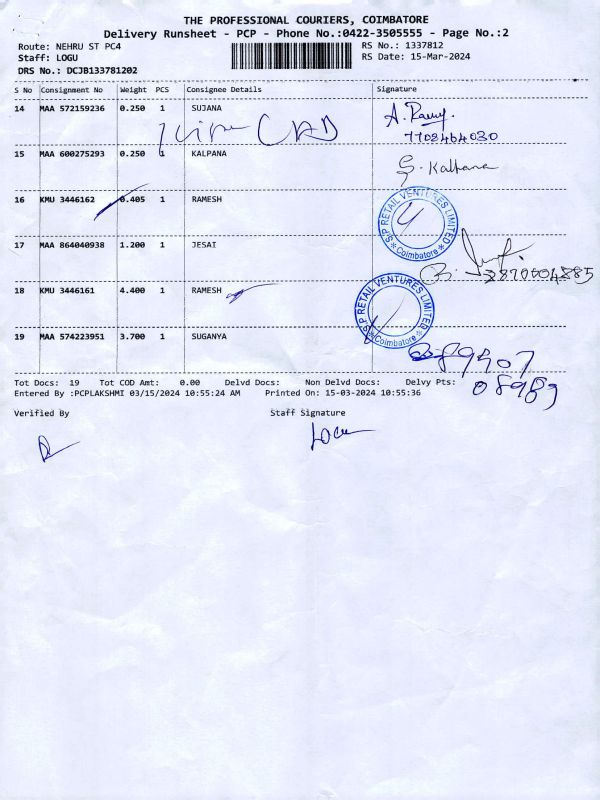 THE PROFESSIONAL COURIERS, COIMBATORE
Delivery Runsheet - PCP - Phone No.:0422-3505555 - Page No.:2
Route: NEHRU ST PC4
RS No.: 1337812
Staff: LOGU
RS Date: 15-Mar-2024
DRS No.: DCJB133781202
S No Consignment No Weight PCS Consignee Details Signature
14 MAA 572159236 0.250 1 SUJANA
7708464030
15 MAA 600275293 0.250 1 KALPANA
S. Kalpana
16 KMU 3446162 0.405 1 RAMESH
S.P RETAIL VENTURES LIMITED
Coimbatore
17 MAA 864040938 1.200 1 JESAI
18 KMU 3446161 4.400 1 RAMESH
S.P RETAIL VENTURES LIMITED
Coimbatore
19 MAA 574223951 3.700 1 SUGANYA
Tot Docs: 19 Tot COD Amt: 0.00 Delvd Docs: Non Delvd Docs: Delvy Pts:
Entered By :PCPLAKSHMI 03/15/2024 10:55:24 AM Printed On: 15-03-2024 10:55:36
Verified By Staff Signature